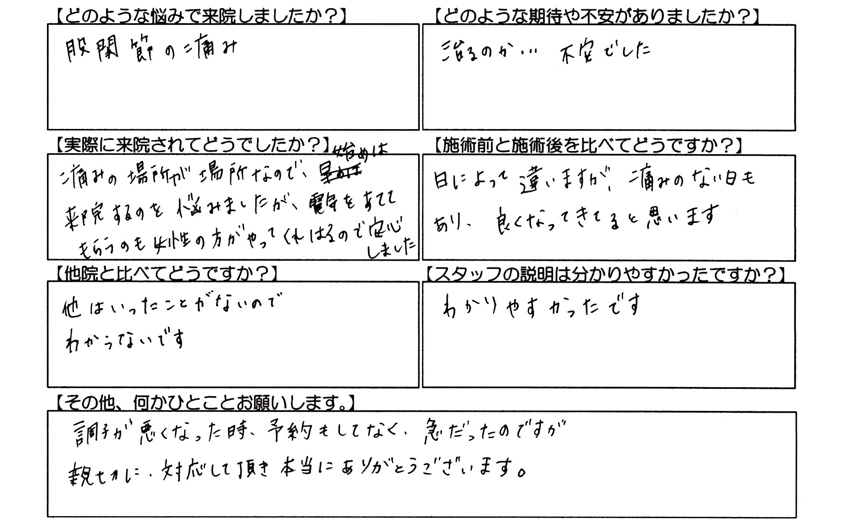 【どのような悩みで来院しましたか?】
股関節の痛み
【どのような期待や不安がありましたか?】
治るのか… 不安でした
【実際に来院されてどうでしたか?】
痛みの場所が場所なので、始めは
来院するのを悩みましたが、電気をあてて
もらうのも女性の方がやってくれはるので安心
しました
【施術前と施術後を比べてどうですか?】
日によって違いますが、痛みのない日も
あり、良くなってきてると思います
【他院と比べてどうですか?】
他はいったことがないので
わからないです
【スタッフの説明は分かりやすかったですか?】
わかりやすかったです
【その他、何かひとことお願いします。】
調子が悪くなった時、予約もしてなく、急だったのですが
親切に、対応して頂き本当にありがとうございます。